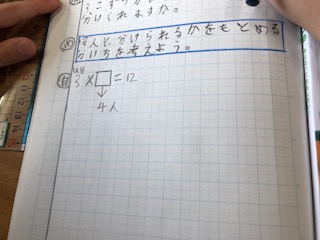 分けられますか。
め 何人に分けられるかをもとめる
分け方を考えよう。
自 3×□=12
↓
4人